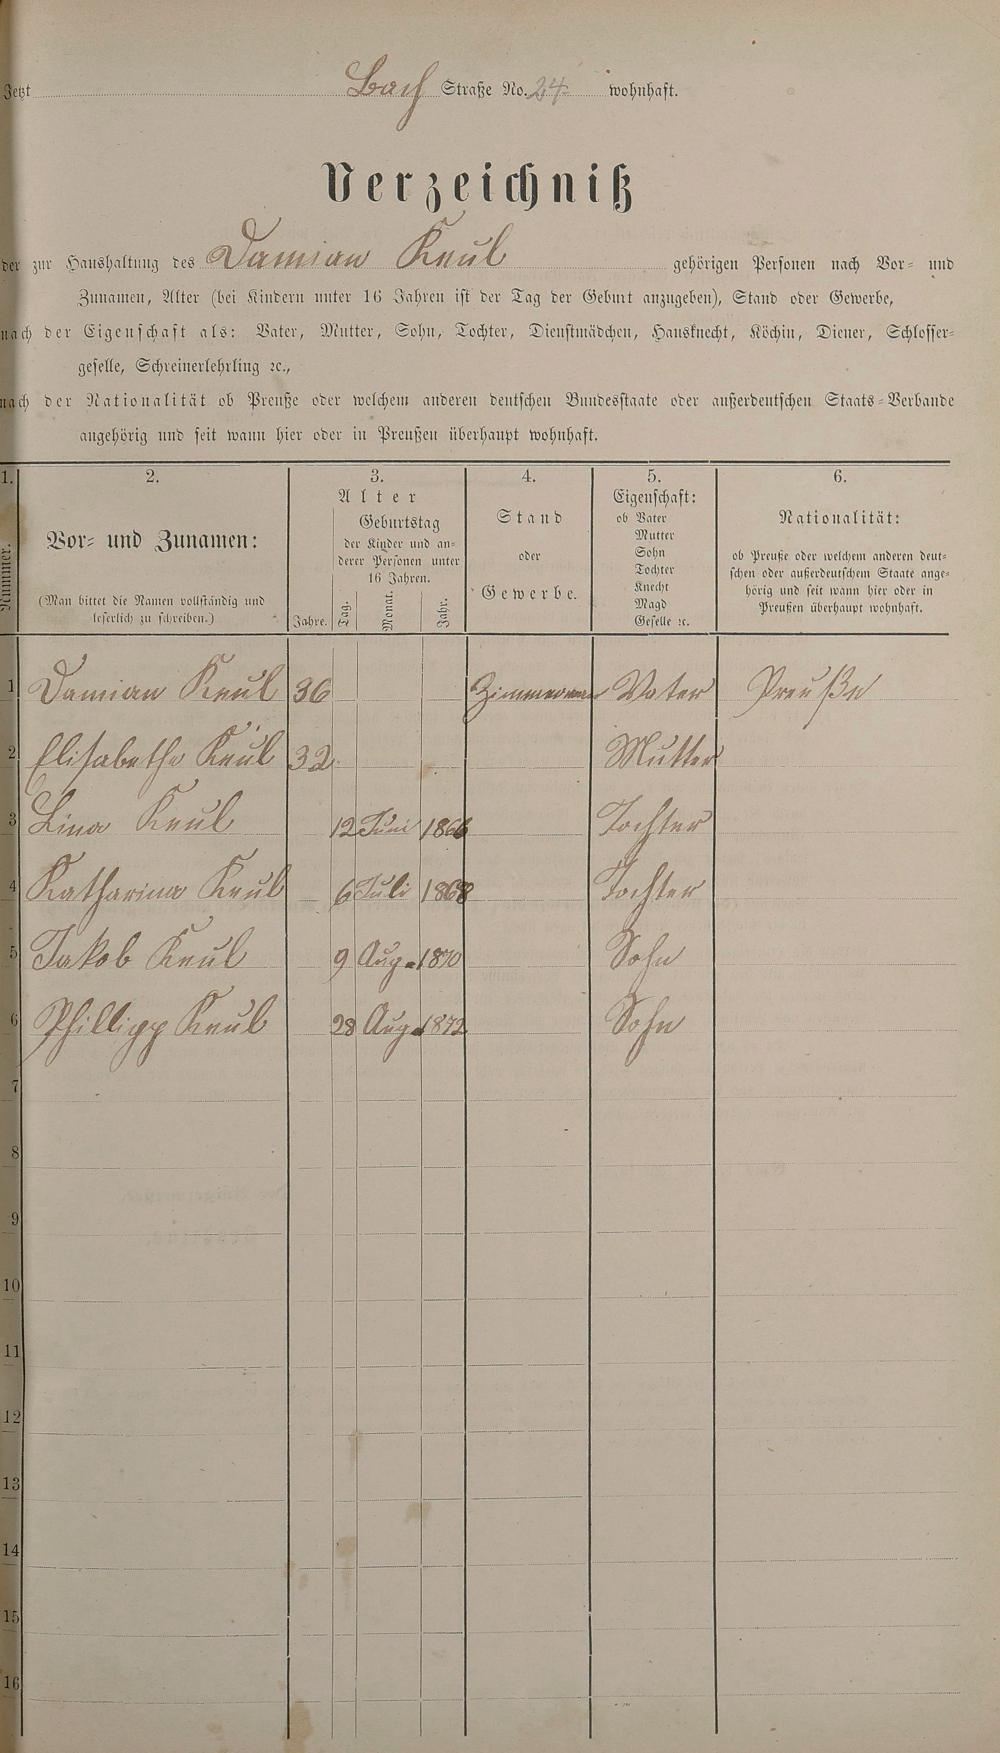 Jetzt Bach Straße No. 24 wohnhaft.
Verzeichniß
der zur Haushaltung des Damian Keul gehörigen Personen nach Vor- und
Zunamen, Alter (bei Kindern unter 16 Jahren ist der Tag der Geburt anzugeben), Stand oder Gewerbe,
nach der Eigenschaft als: Vater, Mutter, Sohn, Tochter, Dienstmädchen, Hausknecht, Köchin, Diener, Schlosser-
geselle, Schreinerlehrling ꝛc.,
nach der Nationalität ob Preuße oder welchem anderen deutschen Bundesstaate oder außerdeutschen Staats-Verbande
angehörig und seit wann hier oder in Preußen überhaupt wohnhaft.
1.
Nummer.
2.
Vor- und Zunamen:
(Man bittet die Namen vollständig und
leserlich zu schreiben.)
3.
Alter
Geburtstag
der Kinder und an-
derer Personen unter
16 Jahren.
Jahre. Tag. Monat. Jahr.
4.
Stand
oder
Gewerbe.
5.
Eigenschaft:
ob Vater
Mutter
Sohn
Tochter
Knecht
Magd
Geselle ꝛc.
6.
Nationalität:
ob Preuße oder welchem anderen deut-
schen oder außerdeutschem Staate ange-
hörig und seit wann hier oder in
Preußen überhaupt wohnhaft.
1 Damian Keul 36 Zimmerman Vater Preuße
2 Elisabethe Keul 32 Mutter
3 Lina Keul 12 Juni 1866 Tochter
4 Katharina Keul 6 Juli 1868 Tochter
5 Jakob Keul 9 Aug. 1870 Sohn
6 Phillipp Keul 28 Aug. 1872 Sohn
7
8
9
10
11
12
13
14
15
16